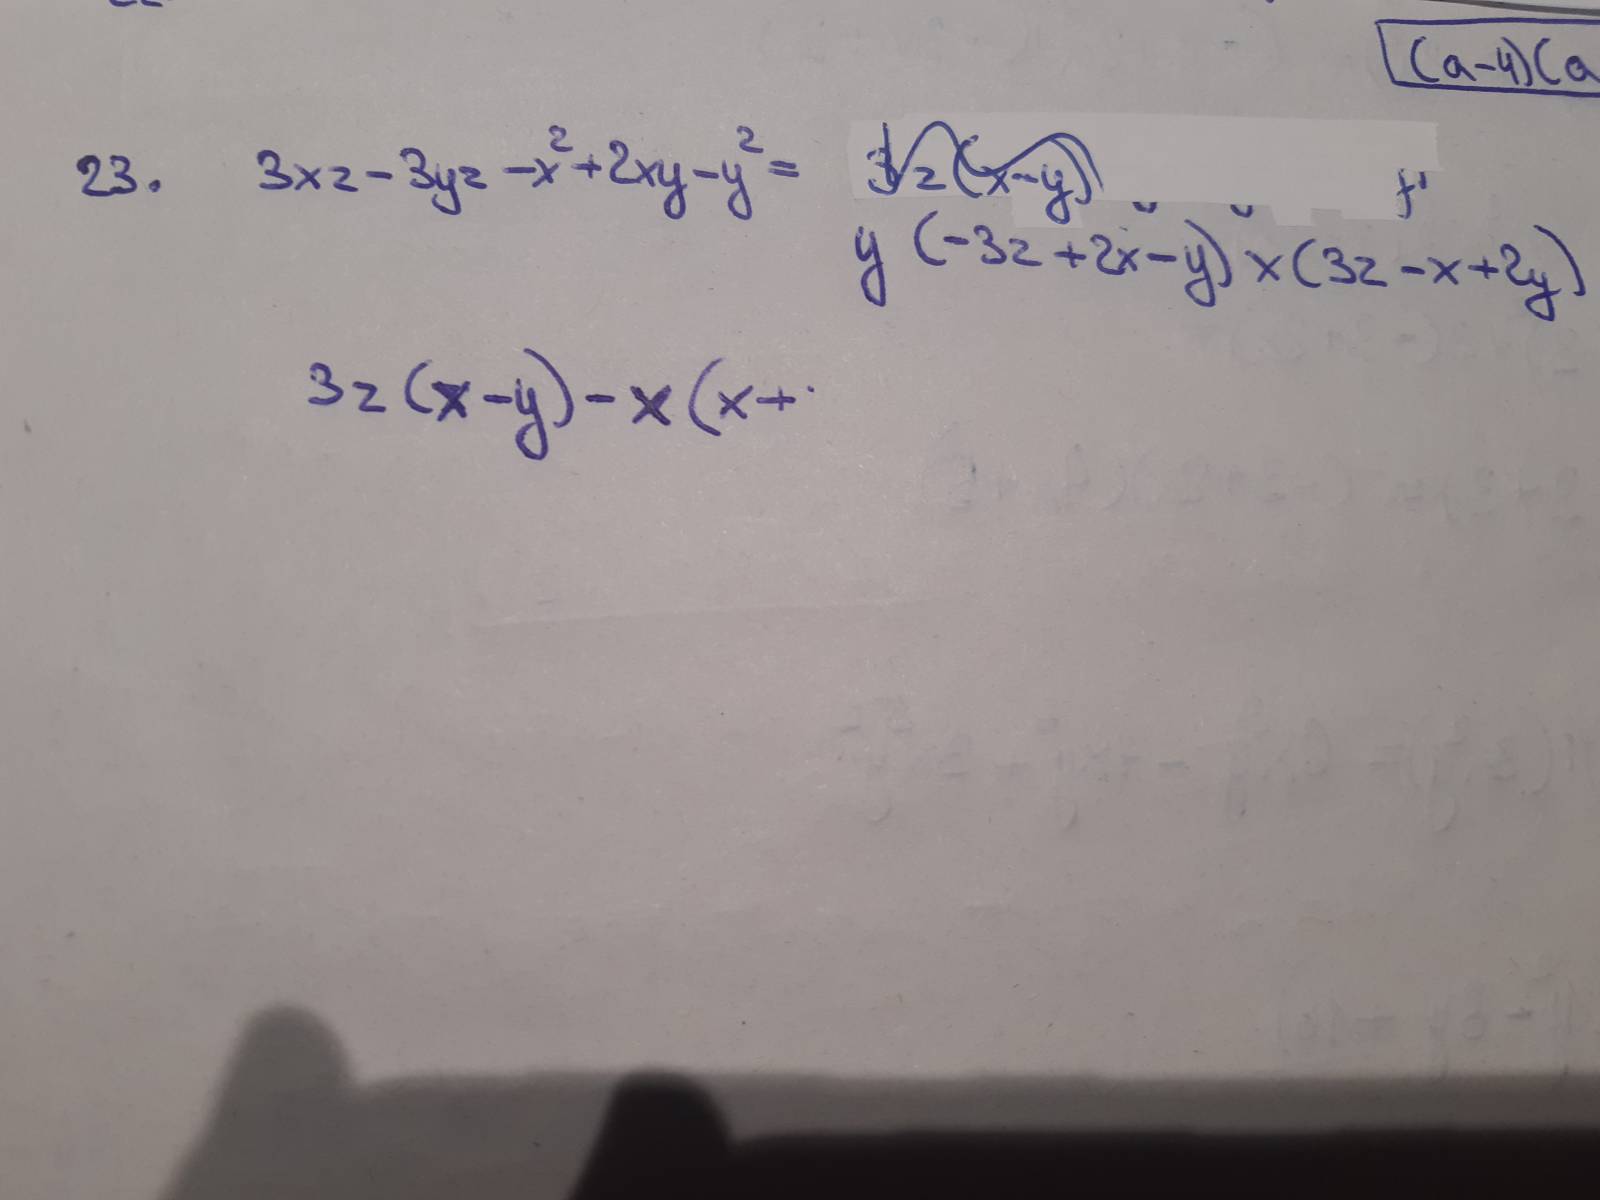 (a-4)(a
23. 3xz - 3yz - x² + 2xy - y² = 3z(x-y)
y (-3z + 2x - y) x (3z - x + 2y)
3z (x - y) - x (x +